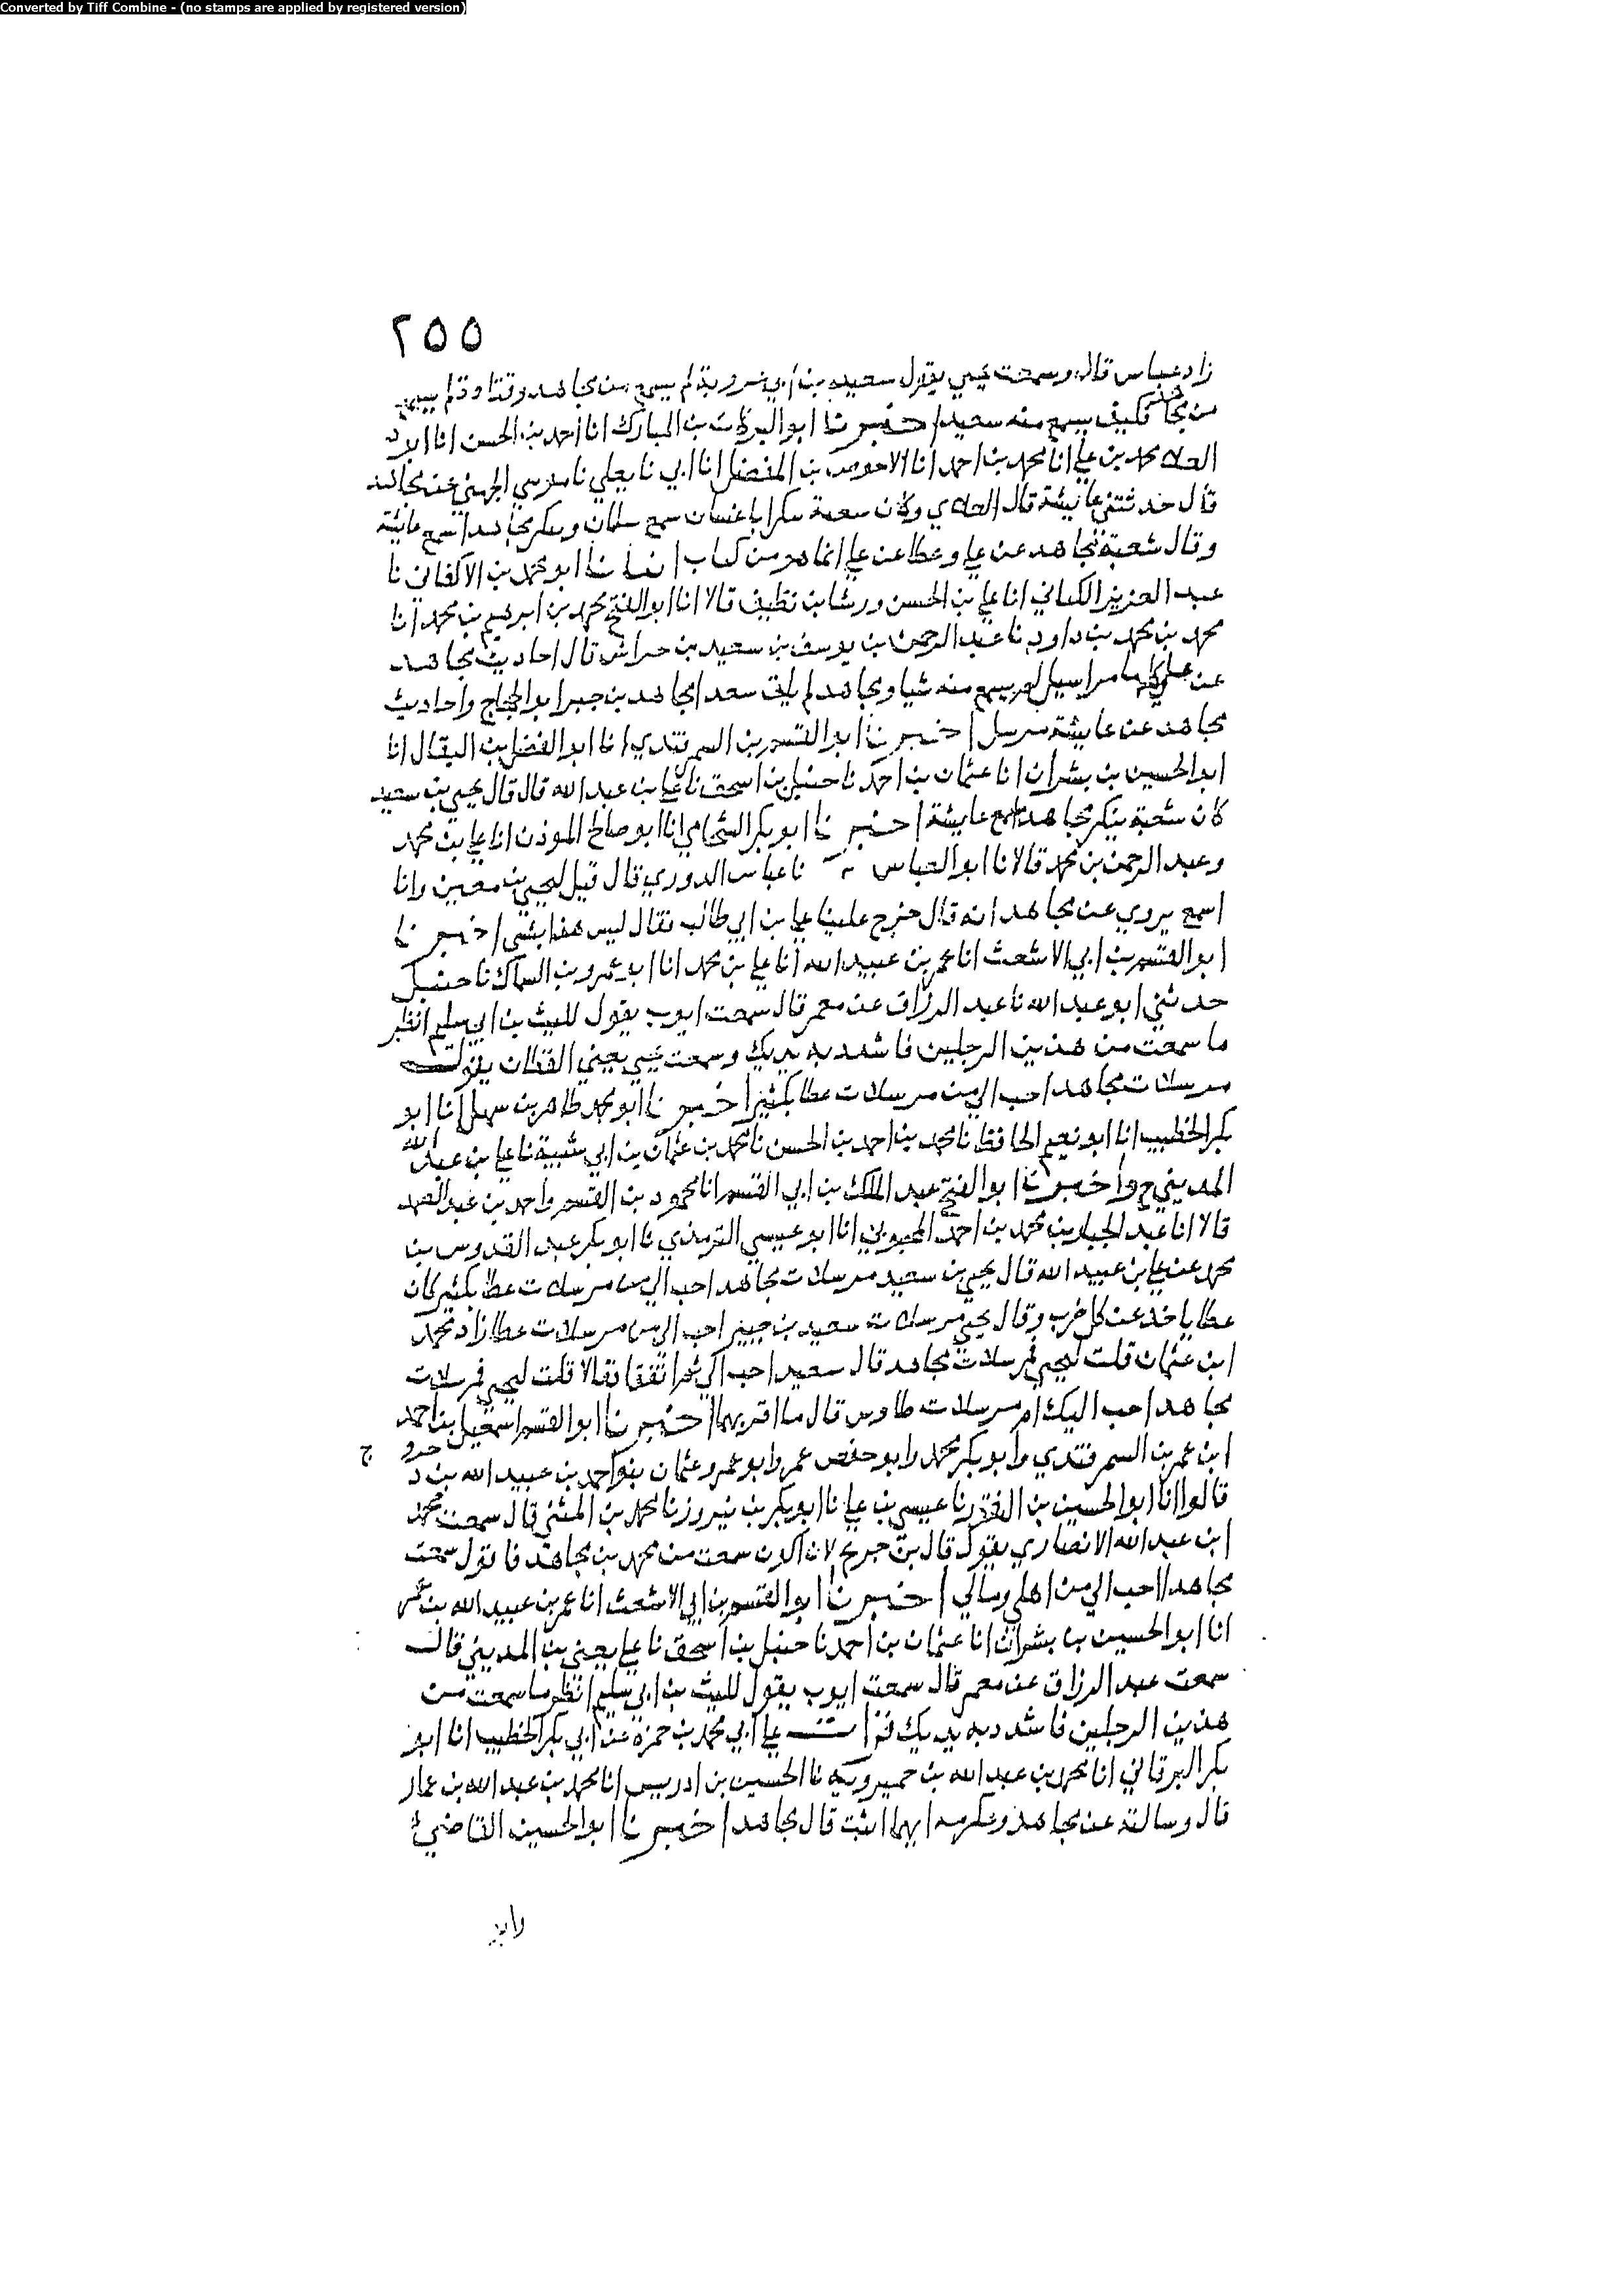 Converted by Tiff Combine - (no stamps are applied by registered version)
٢٥٥
زاد عباس قال وسمعت يحيى يقول سعيد بن ابي عروبة لم يسمع من مجاهد وقتادة لم يسمع
من مجاهد فكيف يسمع منه سعيد اخبرنا ابو البركات بن المبارك انا احمد بن الحسن انا ابو
العلا محمد بن علي انا محمد بن احمد انا الاحوص بن المفضل انا ابي نا يعلي نا موسي الجهني عن مجاهد
قال حدثتني عايشة قال العلا وكان شعبة ينكر ابا عثمان سمع سلمان وينكر مجاهدا سمع عايشة
وقال شعبة مجاهد عن علي وعطا عن علي انما هو من كتاب انبانا ابو محمد بن الاكفاني نا
عبد العزيز الكتاني انا علي بن الحسن ورشا بن نظيف قالا انا ابو الفتح محمد بن ابرهيم بن محمد انا
محمد بن محمد بن داود نا عبد الرحمن بن يوسف بن سعيد بن خراش قال احاديث مجاهد
عن علي مراسيل لم يسمع منه شيا ومجاهد لم يلق سعدا مجاهد بن جبر ابو الحجاج واحاديث
مجاهد عن عايشة مرسل اخبرنا ابو القسم بن السمرقندي انا ابو الفضل بن البقال انا
ابو الحسين بن بشران انا عثمان بن احمد نا حنبل بن اسحق نا علي بن عبد الله قال قال يحيى بن سعيد
كان شعبة ينكر مجاهد سمع عايشة اخبرنا ابو بكر الشحامي انا ابو صالح الموذن انا علي بن محمد
وعبد الرحمن بن محمد قالا نا ابو العباس نا عباس الدوري قال قيل ليحيى بن معين وانا
اسمع يروي عن مجاهد انه قال خرج علينا علي بن ابي طالب فقال ليس هذا بشي اخبرنا
ابو القسم بن ابي الاشعث انا عمر بن عبيد الله انا علي بن محمد انا ابو عمرو بن السماك نا حنبل
حدثني ابو عبد الله نا عبد الرزاق عن معمر قال سمعت ايوب يقول لليث بن ابي سليم انظر
ما سمعت من هذين الرجلين فاشدد به يديك وسمعت يحيى يعني القطان يقول
مرسلات مجاهد احب الي من مرسلات عطا بكثير اخبرنا ابو محمد طاهر بن سهل انا ابو
بكر الخطيب انا ابو نعيم الحافظ نا محمد بن احمد بن الحسن نا محمد بن عثمان بن ابي شيبة نا علي بن عبد الله
المديني ح واخبرنا ابو الفتح عبد الملك بن ابي القسم انا محمود بن القسم واحمد بن عبد الصمد
قالا انا عبد الجبار بن محمد بن احمد المحبوبي انا ابو عيسي الترمذي نا ابو بكر عبد القدوس بن
محمد عن علي بن عبيد الله قال يحيى بن سعيد مرسلات مجاهد احب الي من مرسلات عطا بكثير كان
عطا ياخذ عن كل ضرب وقال يحيى مرسلات سعيد بن جبير احب الي من مرسلات عطا زاد محمد
ابن عثمان قلت ليحيى فمرسلات مجاهد قال سعيد احب الي ثم اتفقا فقالا قلت ليحيى فمرسلات
مجاهد احب اليك ام مرسلات طاوس قال ما اقربهما اخبرنا ابو القسم اسمعيل بن احمد
ابن عمر بن السمرقندي وابو بكر محمد وابو حفص عمر وابو عمرو عثمان بنو احمد بن عبيد الله بن د حرو ج
قالوا انا ابو الحسين بن النقور نا عيسي بن علي نا ابو بكر بن نيروز نا محمد بن المثني قال سمعت محمد
ابن عبد الله الانصاري يقول قال بن جريج لان اكون سمعت من محمد بن مجاهد فاقول سمعت
مجاهدا احب الي من اهلي ومالي اخبرنا ابو القسم بن ابي الاشعث انا عمر بن عبيد الله بن عمر
انا ابو الحسين بن بشران انا عثمان بن احمد نا حنبل بن اسحق نا علي يعني بن المديني قال
سمعت عبد الرزاق عن معمر قال سمعت ايوب يقول لليث بن ابي سليم انظر ما سمعت من
هذين الرجلين فاشدد به يديك قرات علي ابي محمد بن حمزة عن ابي بكر الخطيب انا ابو
بكر البرقاني انا محمد بن عبد الله بن خميرويه نا الحسين بن ادريس انا محمد بن عبد الله بن عمار
قال وسالته عن مجاهد وعكرمه ايهما اثبت قال مجاهد اخبرنا ابو الحسين القاضي
وابو